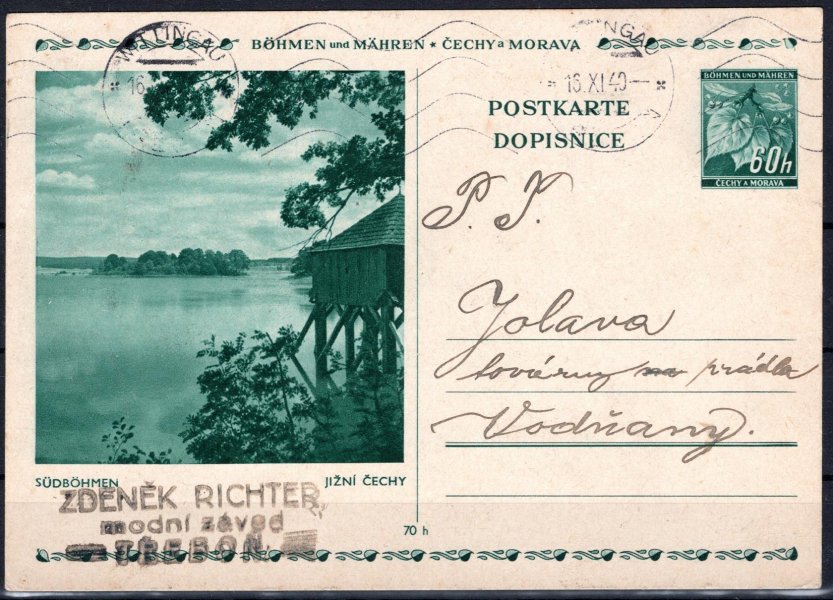 BÖHMEN und MÄHREN * ČECHY a MORAVA
WITTINGAU
16
NGAU
16.XI.40
POSTKARTE
DOPISNICE
BÖHMEN UND MÄHREN
60h
ČECHY A MORAVA
P. T.
Jolava
továrny na prádla
Vodňany.
SÜDBÖHMEN
JIŽNÍ ČECHY
ZDENĚK RICHTER
modní závod
TŘEBOŇ
70 h